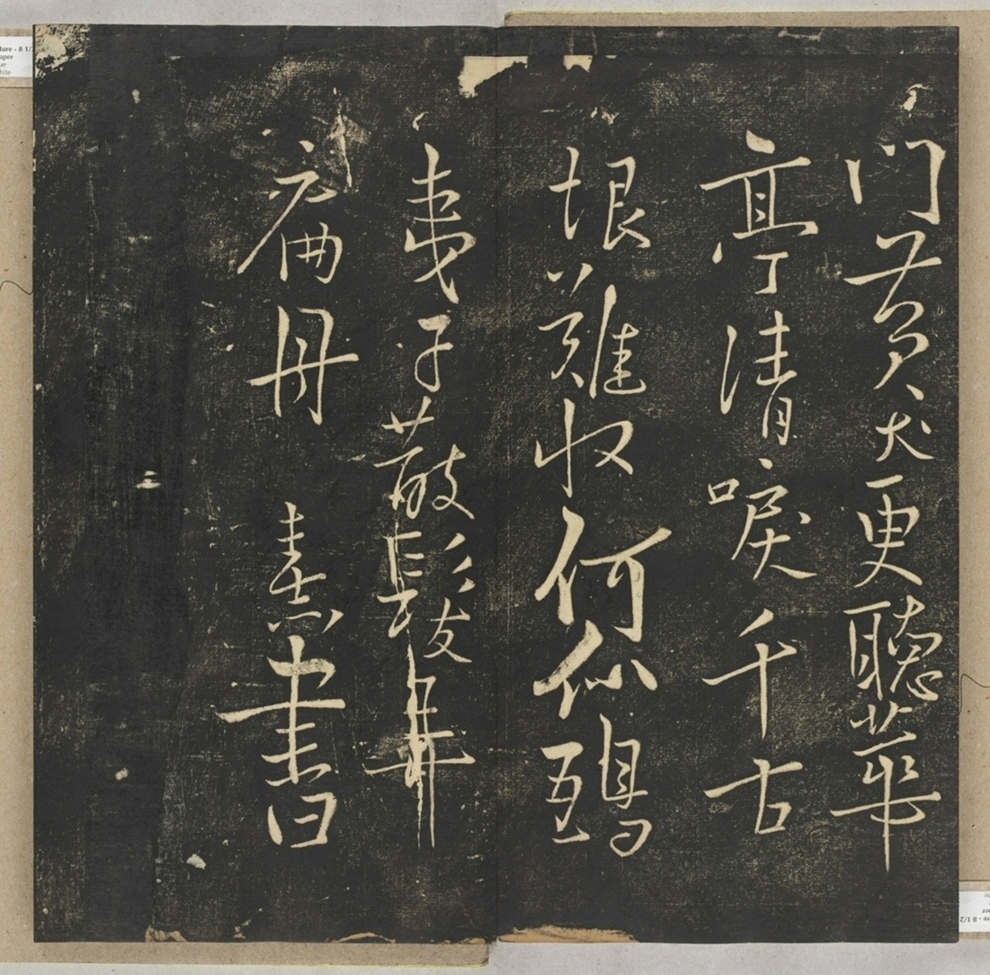 門黃犬更聽華
亭清唳千古
恨難收何似鴟
夷子散髮弄
扁舟　熹書